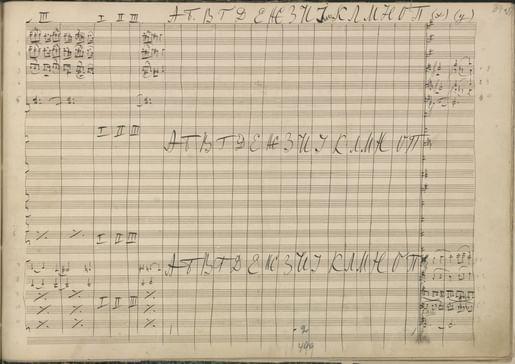 III I II III А Б В Г Д Е Ж З И І К Л М Н О П (x) (y)
I II III А Б В Г Д Е Ж З И І К Л М Н О П
I II III
А Б В Г Д Е Ж З И І К Л М Н О П
I II III